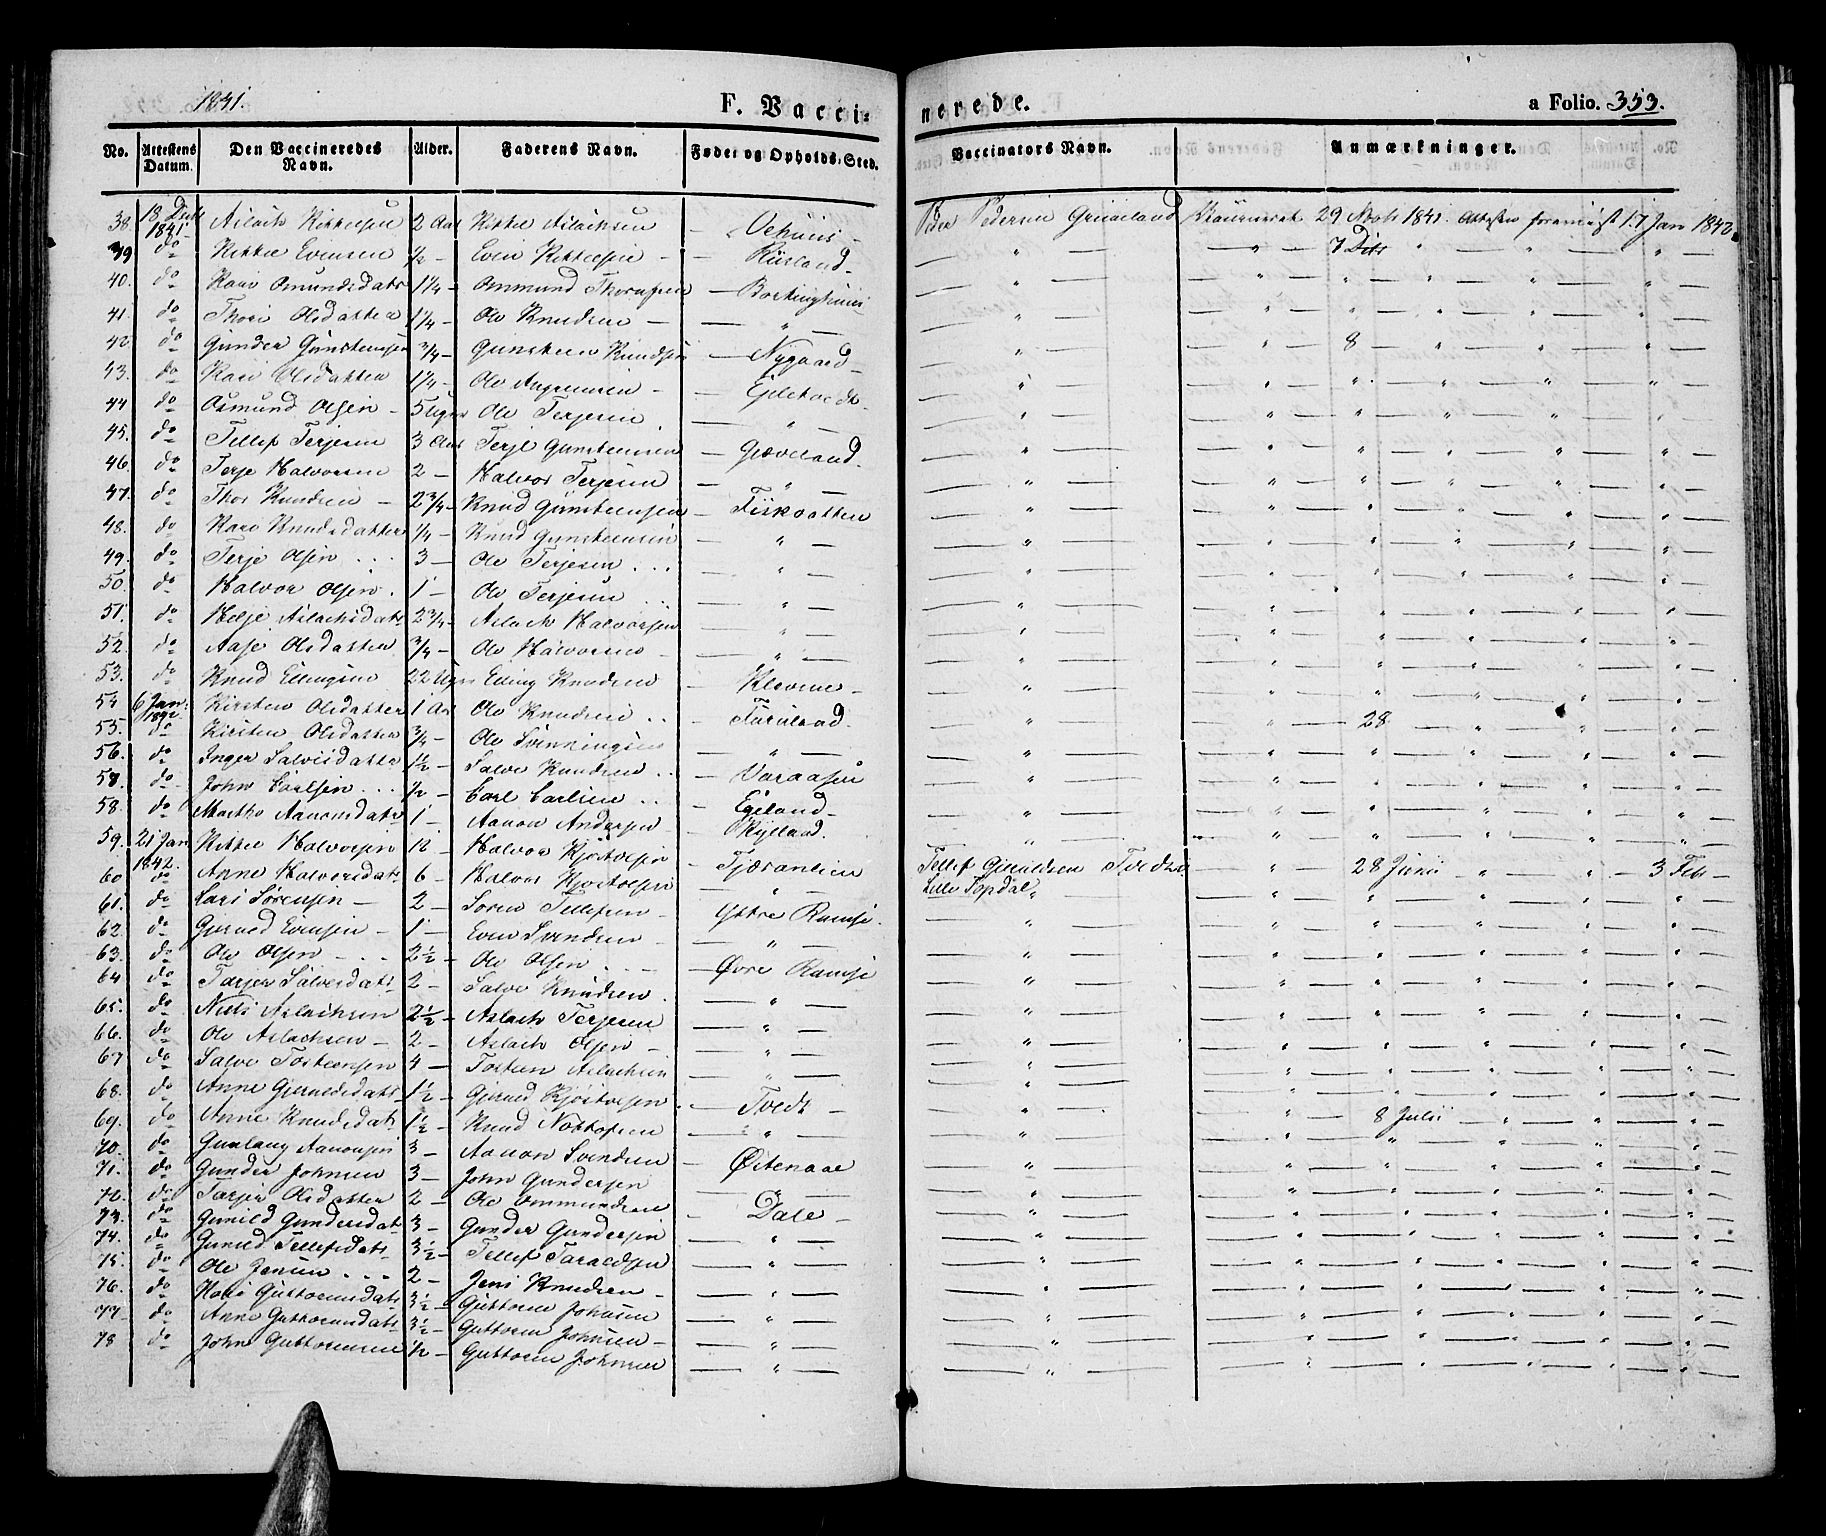 1841.
F. Vaccinerede.
a Folio. 353.
No. Attestens Datum. Den Vaccineredes Navn. Alder. Faderens Navn. Fødet og Opholds-Sted. Vaccinators Navn. Anmærkninger.
38. 18 Decbr 1841 Aslach Kittelsen 2 Aar Kittel Aslachsen — Peder Pedersen 29 Novbr 1841 Attesten 17 Jan 1842.
39 do Kittel Evensen ½ — Even Kittelsen — — Riisland — 7 Dcbr
40. do Kari Omundsdatr 1¼ — Ommund — "
41. do Thore Olsdatter 1¼ — Ole Knudsen — — " —
42 do Gunder Gunstensen ¾ — Gunsten Knudsen — Nygaard — 8
43. do Kari Olsdatter 1¼ — Ole —
44 do Osmund Olsen — 5 Uger Ole Terjesen . — " —
45. do Tellef Terjesen 3 Aar Terje Gunstensen — Græveland.
46. do Terje Halvorsen 2 — Halvor Terjesen — " —
47. do Thor Knudsen — 2¾ — Knud Gunstensen — Fiskvatten
48. do Kari Knudsdatter ¼ — Knud Gunstensen — " —
49. do Terje Olsen ... 3 — Ole Terjesen ... — " —
50. do Halvor Olsen . 1 — Ole Terjesen .. — " —
51. do Helje Aslachsdatr 2¾ — Aslach Halvorsen — " —
52. do Aasje Olsdatter ¾ — Ole Halvorsen — — " —
53. do Knud Ellingsen 22 Uger Elling Knudsen — Klevenes —
54 6 Jan: 1842. Kirsten Olsdatter 1 Aar Ole Knudsen .. — 28
55. do Kirsten Olsdatter ¾ — Ole Svenningsen — " —
56. do Inger Salvesdatr 1½ — Salve Knudsen .. — Varaasen
57. do John Carlsen ... ½ — Carl Carlsen .. — Egeland —
58. do Marthe Aanonsdatr 1 — Aanon Andersen — Kylland.
59. 21 Jan 1842. Kittel Halvorsen 12 — Halvor Kjøstolsen — Tjæranlien Tellef Gjeruldsen Tvedt — " — 28 Juni — " — 3 Feb —
60 do Anne Halvorsdatr 6 — Halvor Kjøstolsen — " — Lille Topdal
61. do Lars Sørensen — 2 — Søren Tellefsen — — Yttre Ramse.
62. do Gjeruld Evensen — 1 — Even Svendsen — — " —
63. do Ole Olsen - - - 2½ — Ole Olsen ... — Øvre Ramse
64 do Tarjer Salvesdatr 2 — Salve Knudsen . — " —
65. do Niels Aslachsen 2½ — Aslach Terjesen — " —
66. do Ole Aslachsen — 2 — Aslach Olsen — — " —
67 do Salve Tostensen 4 — Tosten Aslachsen — " —
68. do Anne Gjeruldsdatr 1½ — Gjeruld Kjøstolsen . — Tvedt —
69. do Anne Knudsdatr 1½ — Knud — " — 8 Julii
70. do Gunlaug Aanonsen 3 — Aanon Svendsen — Østenaae
71. do Gunder Johnsen 3 — John Gundersen — " —
72. do Tarjer Olsdatter 2 — Ole Ommundsen — Dale —
73. do Gunild Gundersdat 3 — Gunder Gundersen — " —
74. do Gunild Tellefsdatr 3½ — Tellef Taraldsen — " —
75. do Ole Jensen ... 2 — Jens Knudsen — — " —
76. do Kari Guttormsdatr 3½ — Guttorm Johnsen — " —
77. do Anne Guttormsdatr 3½ — Guttorm Johnsen — — " —
78 do John Guttormsen ½ — Guttorm Johnsen — " —